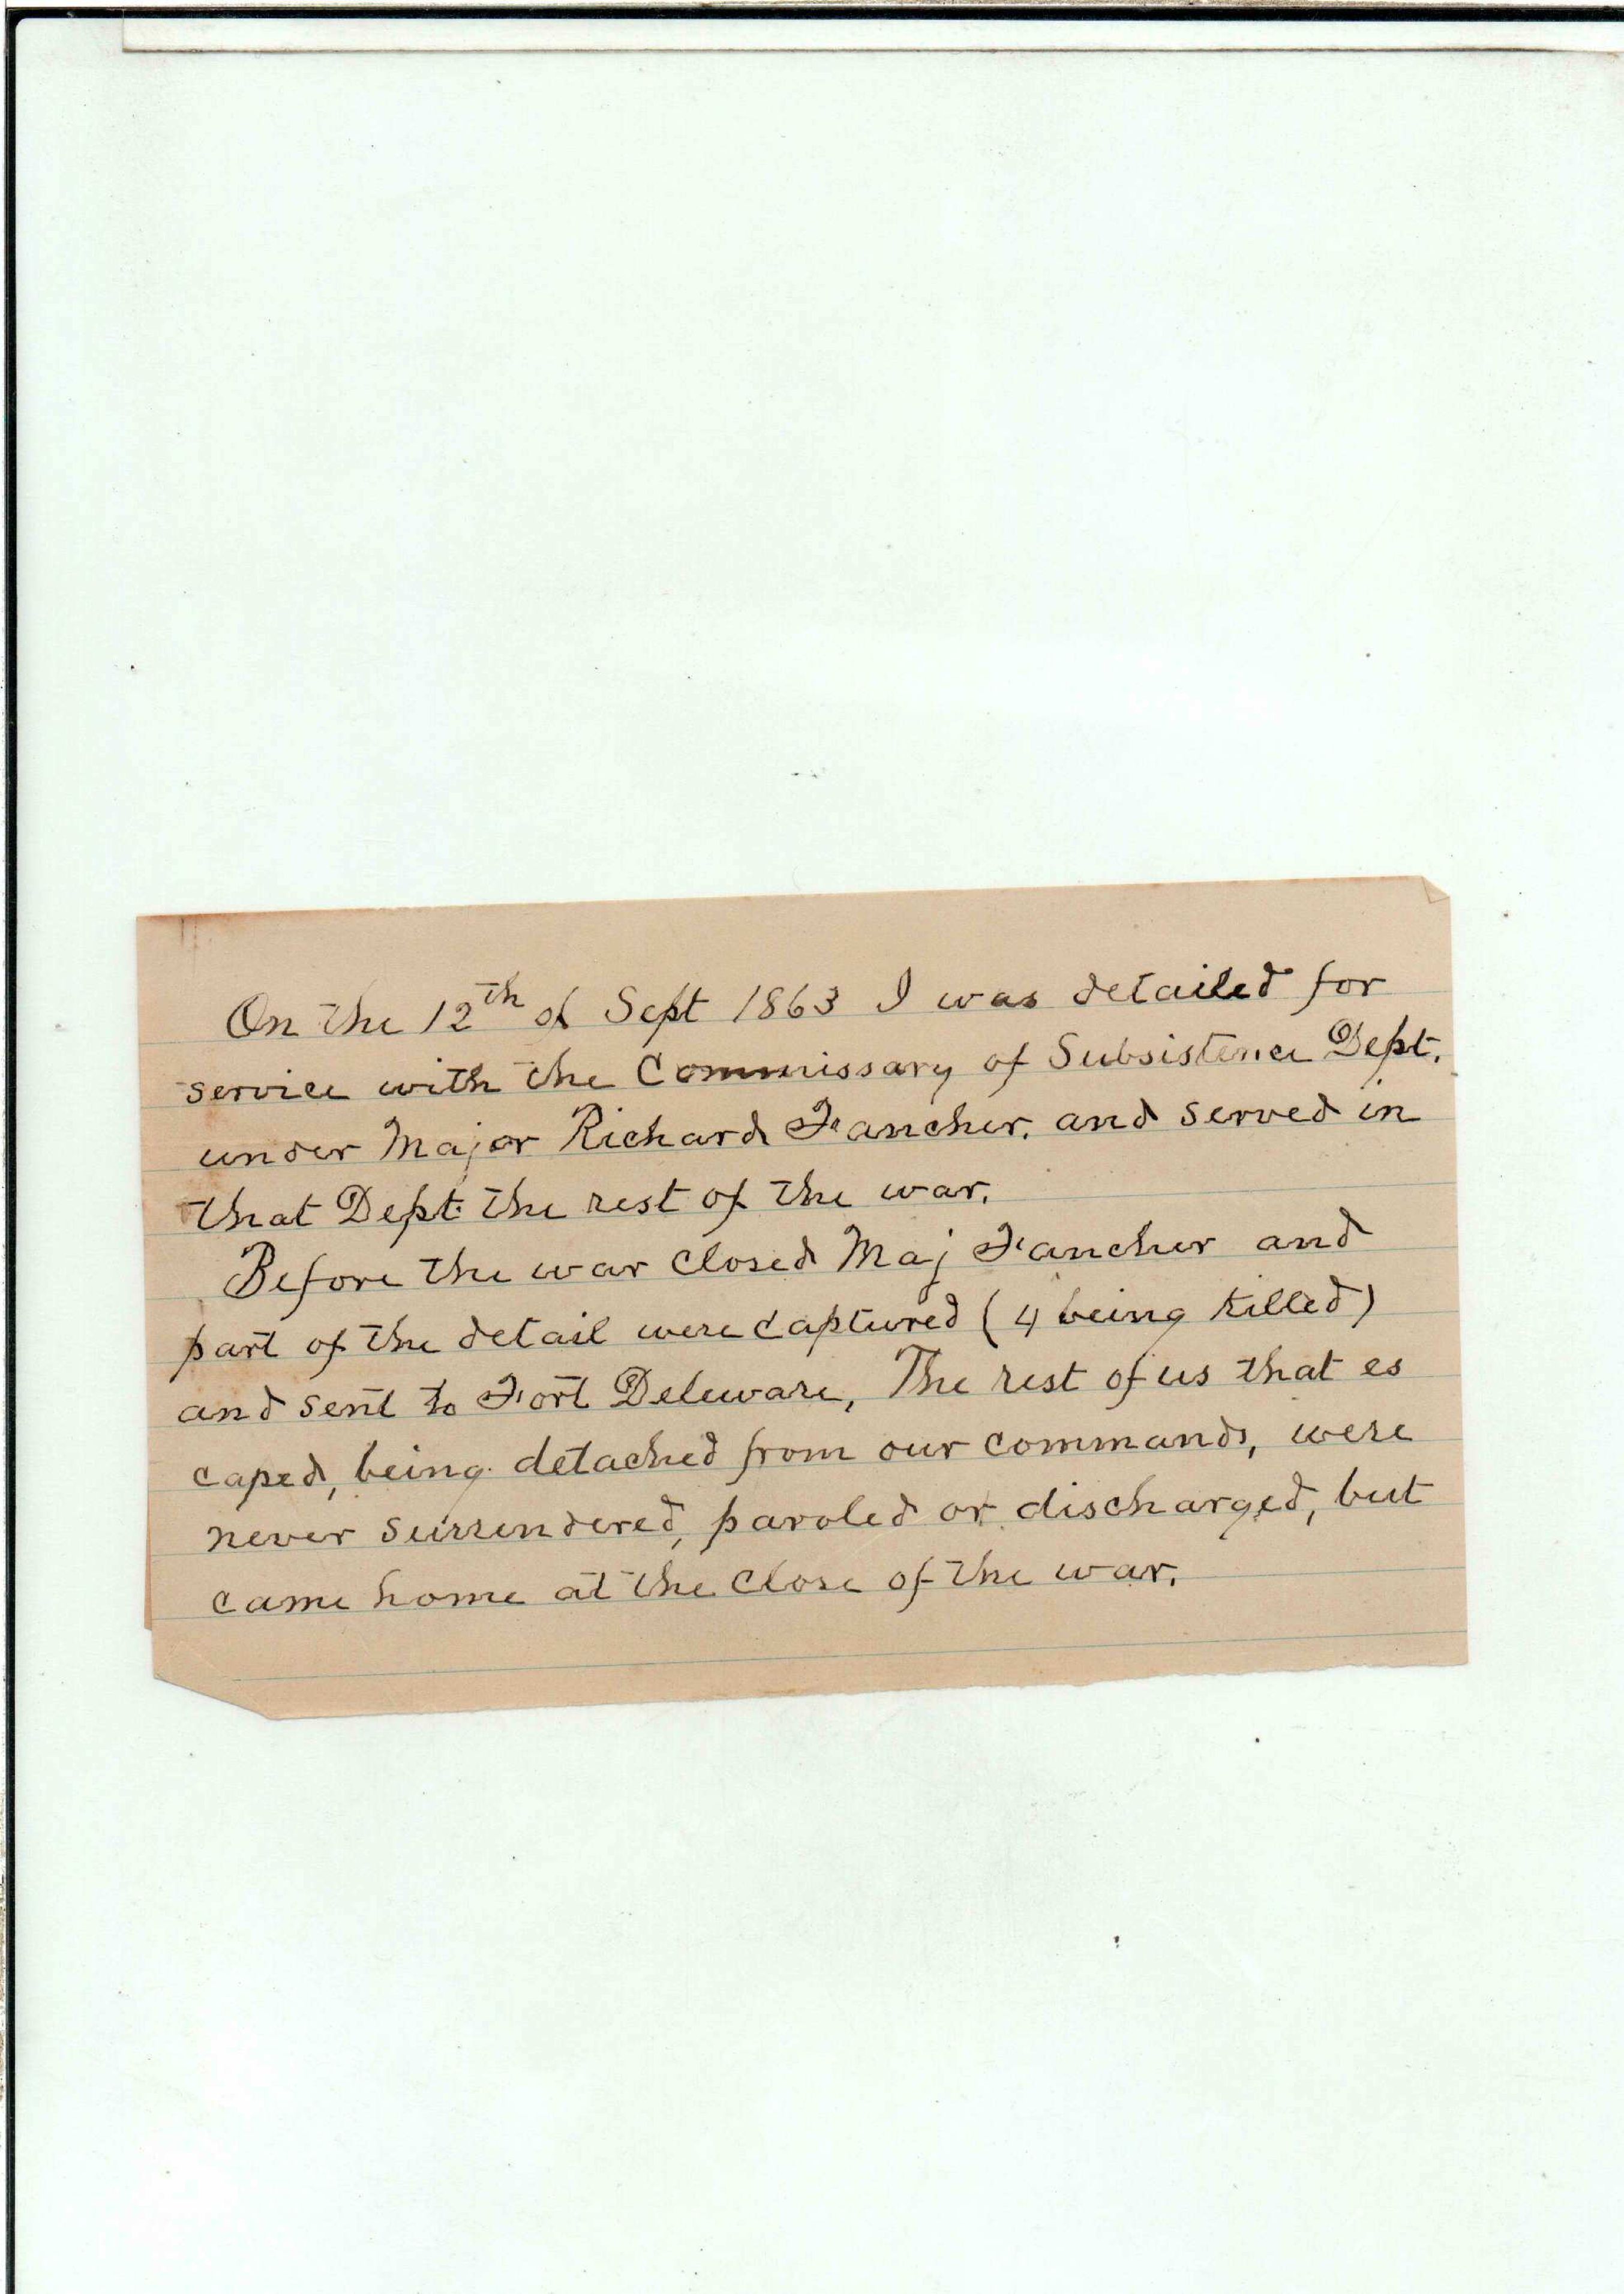 On the 12th of Sept 1863 I was detailed for
service with the Commissary of Subsistence Dept.
under Major Richard Fancher, and served in
that Dept. the rest of the war.
Before the war closed Maj Fancher and
part of the detail were captured (4 being killed)
and sent to Fort Deleware, The rest of us that es
caped, being detached from our commands, were
never surrendered, paroled or discharged, but
came home at the close of the war.